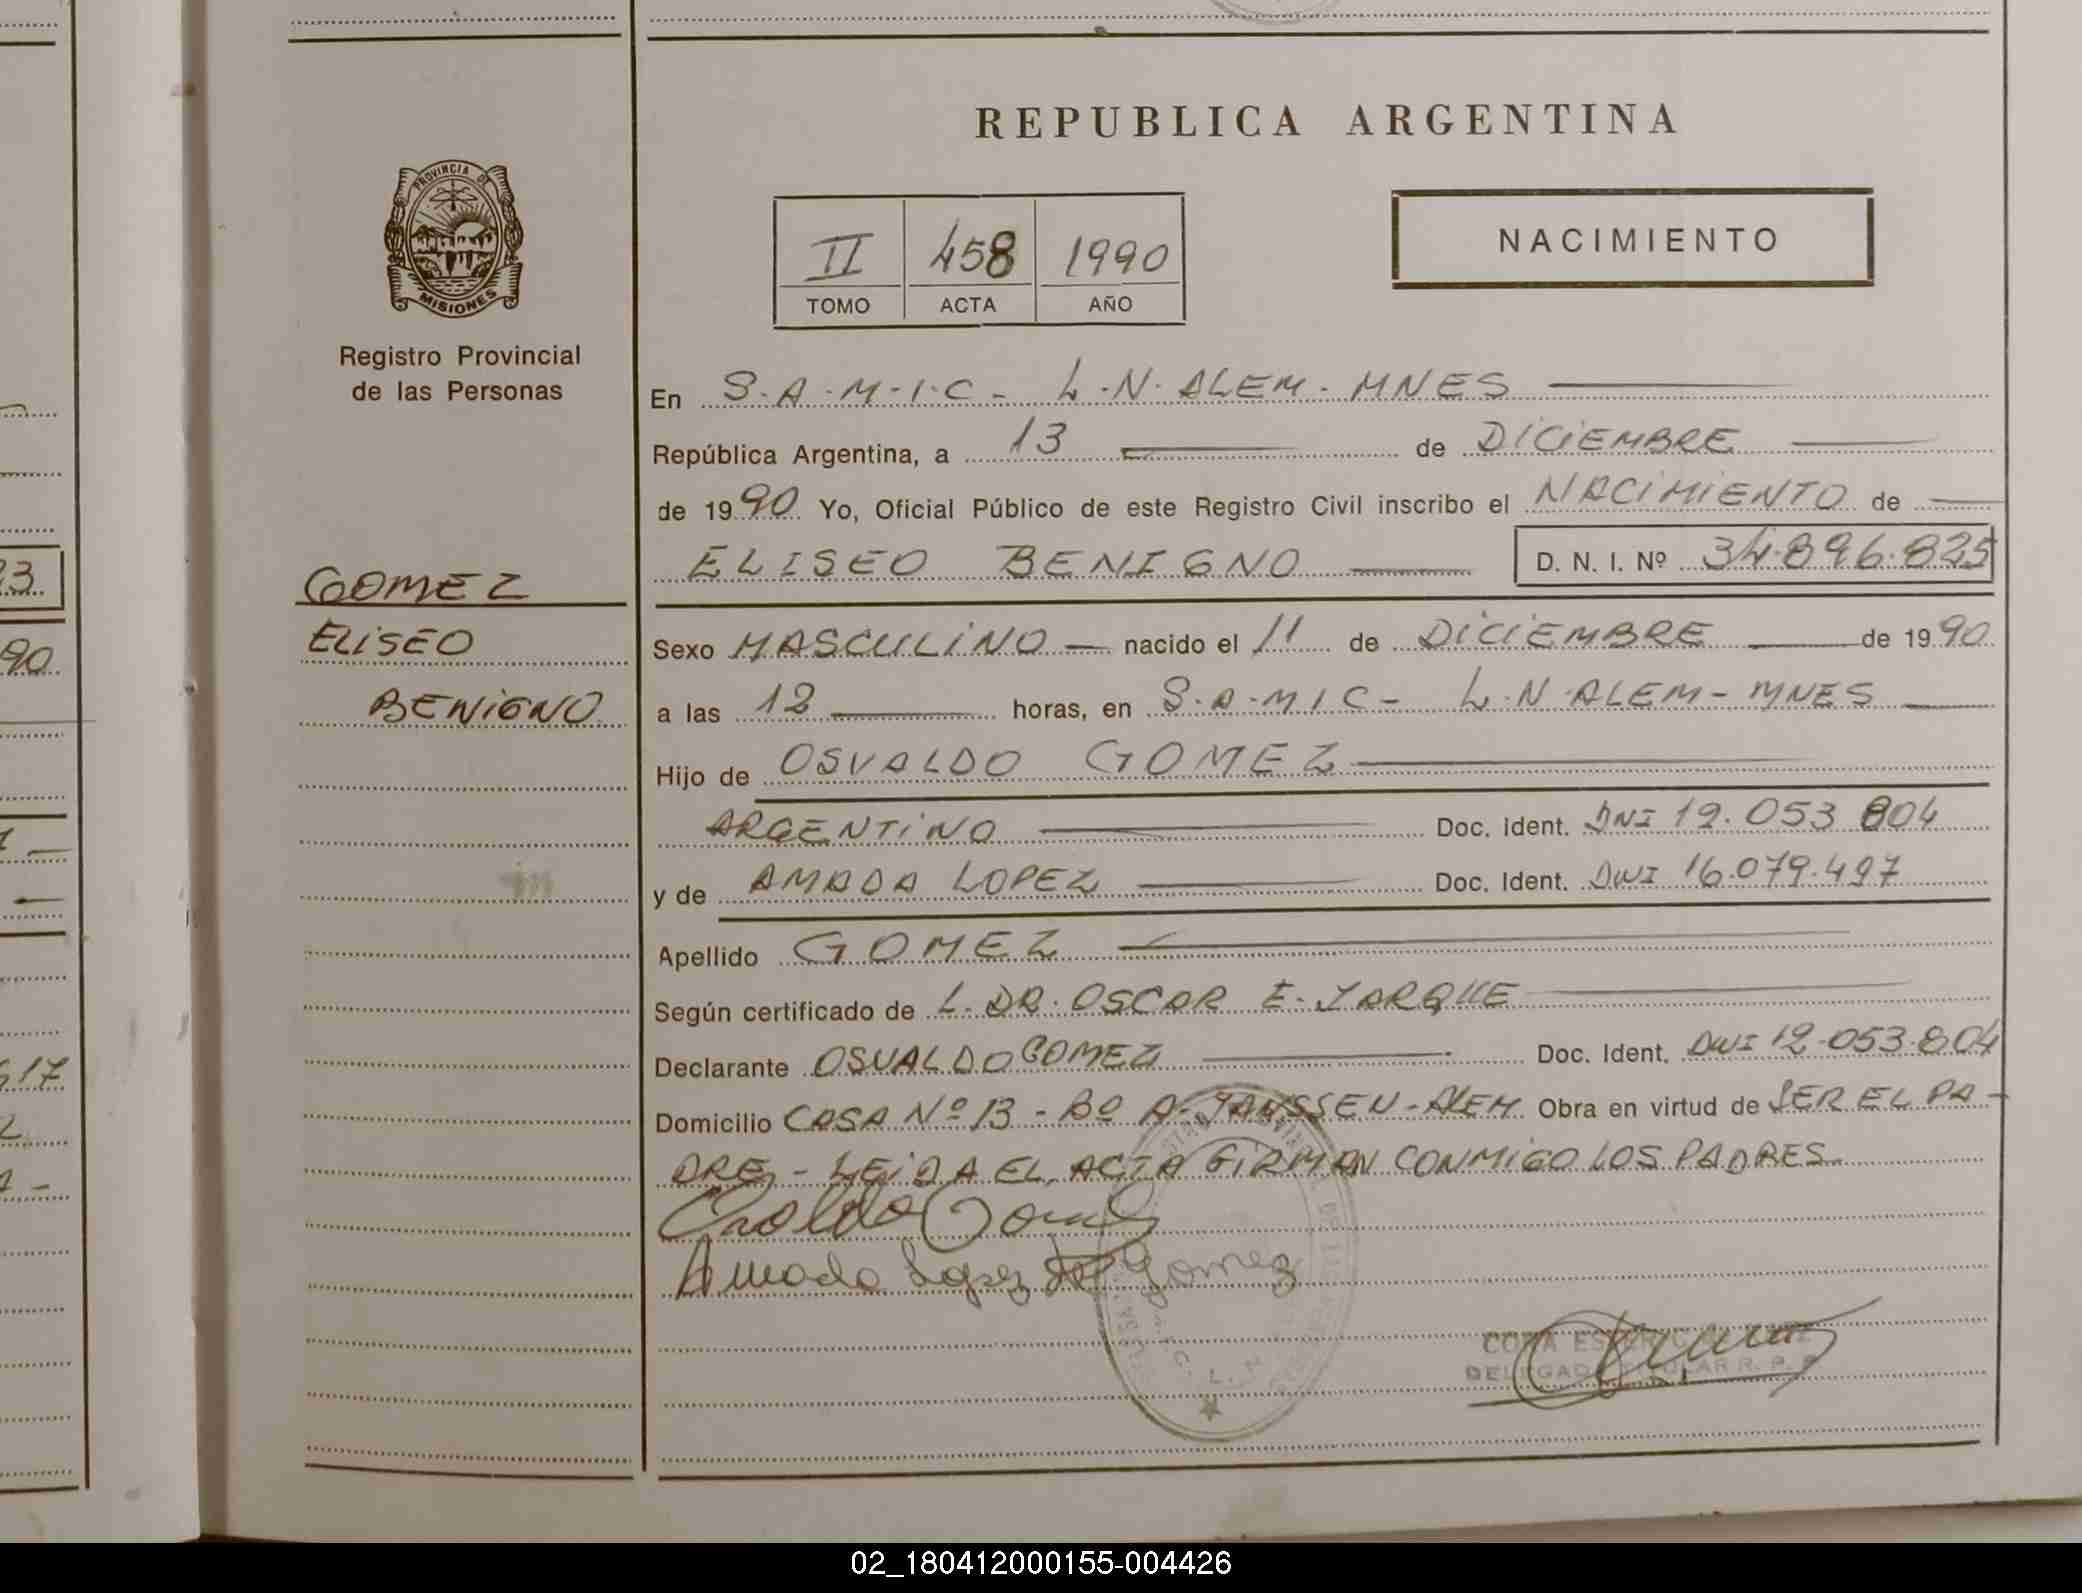 REPUBLICA ARGENTINA
PROVINCIA DE
MISIONES
Registro Provincial
de las Personas
II 458 1990
TOMO ACTA AÑO
NACIMIENTO
En S.A.M.I.C - L.N.ALEM - MNES
República Argentina, a 13 de DICIEMBRE
de 1990 Yo, Oficial Público de este Registro Civil inscribo el NACIMIENTO de
ELISEO BENIGNO D. N. I. Nº 34.896.825
GOMEZ
ELISEO
BENIGNO
Sexo MASCULINO nacido el 11 de DICIEMBRE de 1990
a las 12 horas, en S.A.M.I.C - L.N.ALEM - MNES
Hijo de OSVALDO GOMEZ
ARGENTINO Doc. Ident. DNI 12.053 804
y de AMADA LOPEZ Doc. Ident. DNI 16.079.497
Apellido GOMEZ
Según certificado de L. DR. OSCAR E. JARQUE
Declarante OSVALDO GOMEZ Doc. Ident. DNI 12.053.804
Domicilio CASA Nº 13 - Bº A. JANSSEN - ALEM Obra en virtud de SER EL PA-
DRE - LEIDA EL ACTA FIRMAN CONMIGO LOS PADRES
Osvaldo Gomez
Amada Lopez de Gomez
DELEGADA TITULAR R. P. P.
3.
90
617
02_180412000155-004426